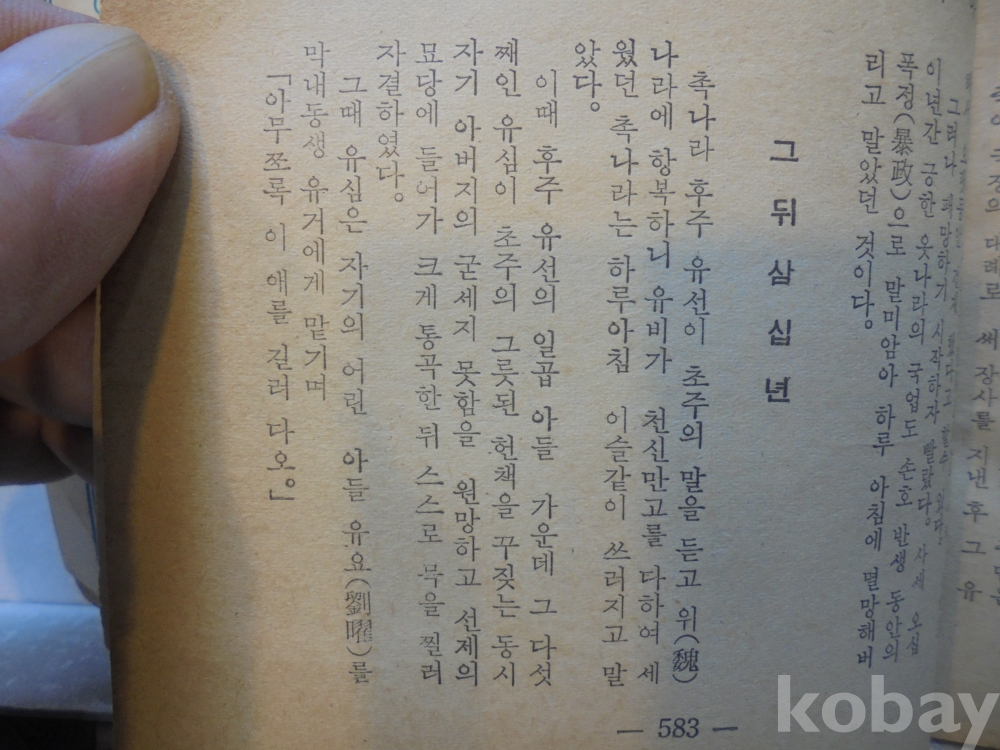 그러나 패망하기 시작하자 빨랐다. 사세 오십
이년간 긍한 옷나라의 국업도 손호 발생 동안의
폭정(暴政)으로 말미암아 하루 아침에 멸망해버
리고 말았던 것이다.
그 뒤 삼 십 년
촉나라 후주 유선이 초주의 말을 듣고 위(魏)
나라에 항복하니 유비가 천신만고를 다하여 세
웠던 촉나라는 하루아침 이슬같이 쓰러지고 말
았다.
이때 후주 유선의 일곱 아들 가운데 그 다섯
째인 유심이 초주의 그릇된 헌책을 꾸짖는 동시
자기 아버지의 굳세지 못함을 원망하고 선제의
묘당에 들어가 크게 통곡한 뒤 스스로 목을 찔러
자결하였다.
그때 유심은 자기의 어린 아들 유요(劉曜)를
막내동생 유거에게 맡기며
「아무쪼록 이 애를 길러 다오。」
— 583 —
kobay